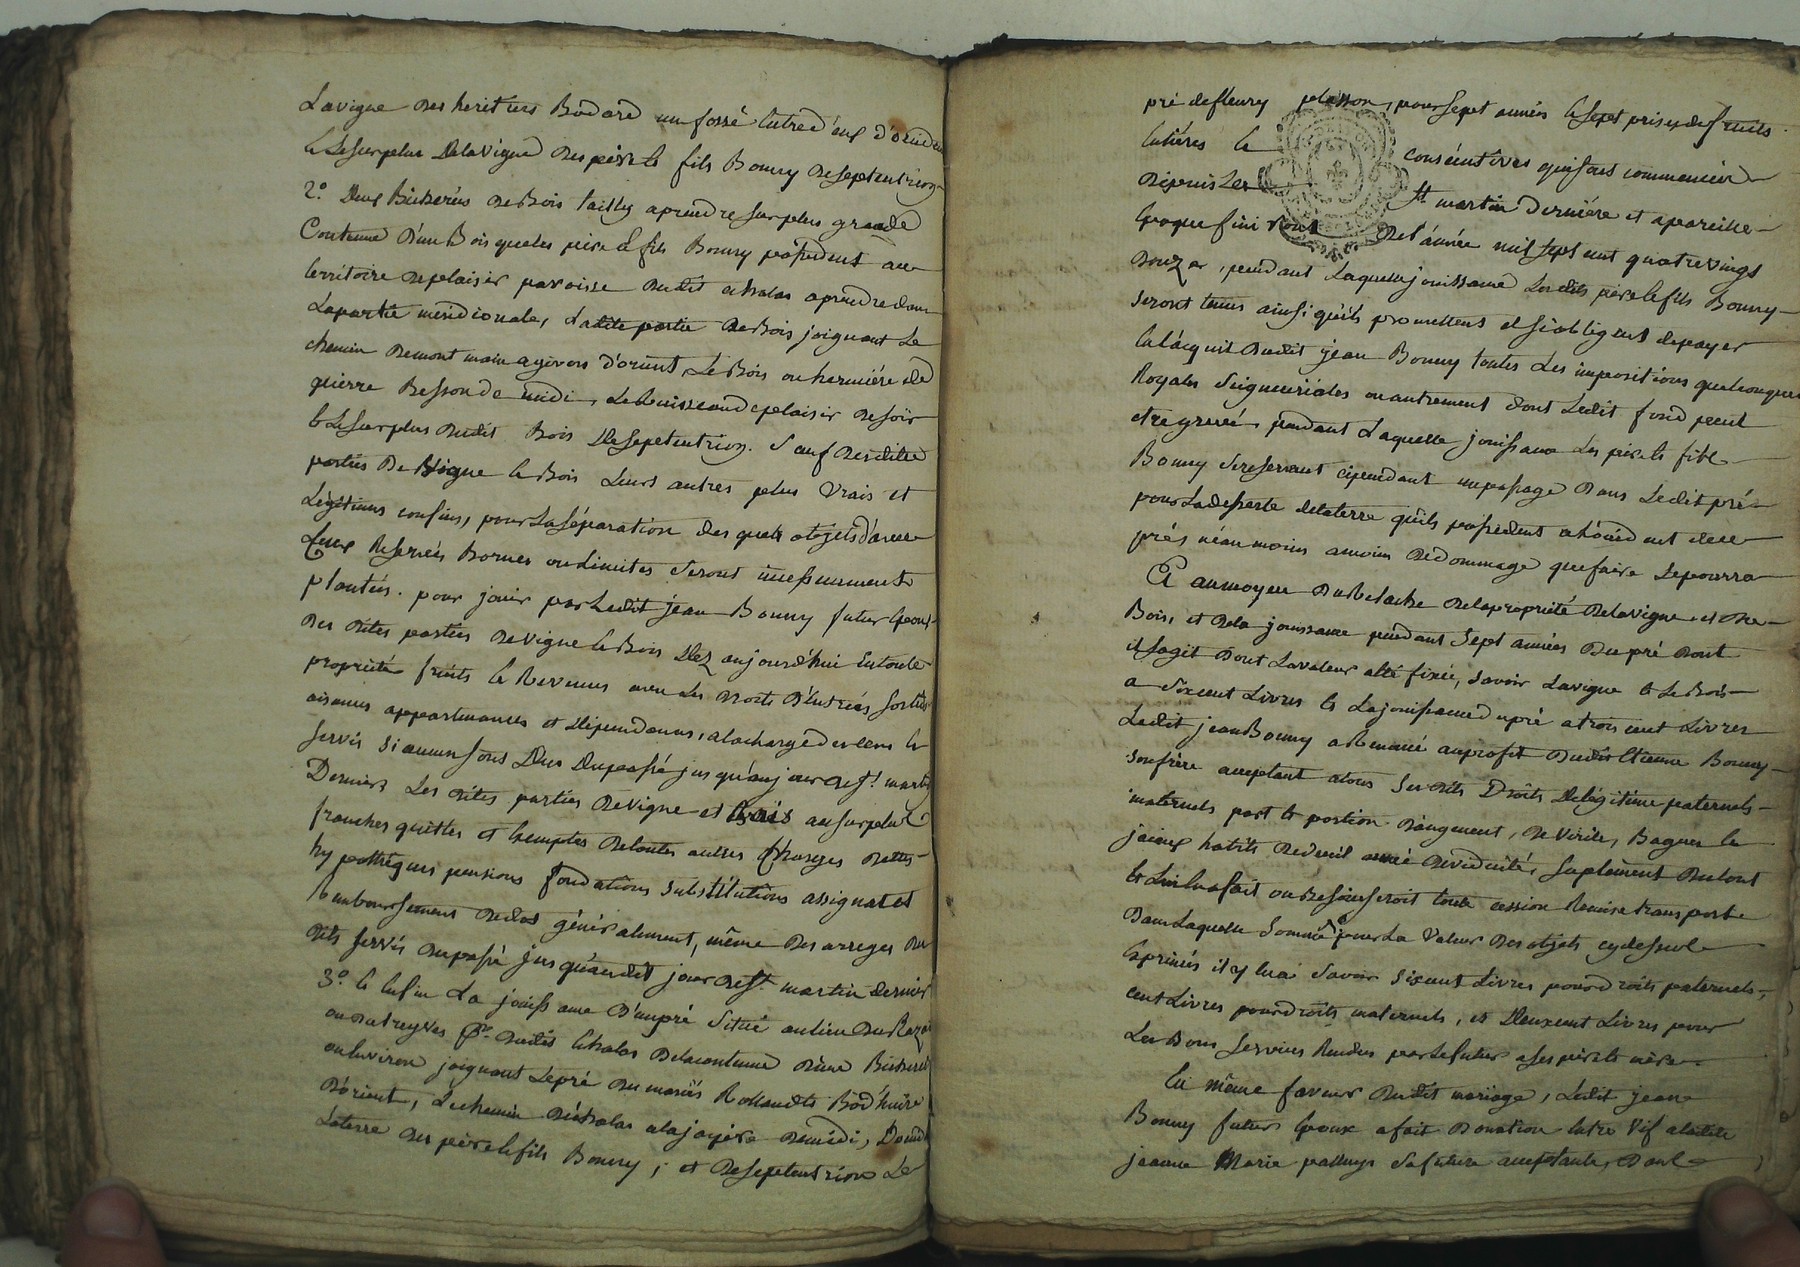 Lavigne des heritiers Bodard un fossé Entred'eux d'orient
& Lesurplus Delavigne des père & fils Bonny deseptentrion
2.º Deux Bicherées de Bois taillis aprendre sur plus grande
Contenue D'un Bois queles père & fils Bonny possedent au
territoire deplaisir paroisse dudit chalas aprendre dans
Lapartie meridionale, Ladite partie de Bois joignant Le
chemin de mont main agivors d'orient, Le Bois ou hermiére de
pierre Besson de midi, Le Ruisseau deplaisir de soir
& Lesurplus dudit Bois de septentrion. Sauf desdites
parties de Vigne & Bois Leurs autres plus vrais et
Légitimes confins, pour La séparation des quels objets d'avec
Ceux Reservés Bornes ou Limites seront incessamment
plantées. pour jouir par Ledit jean Bonny futur Epoux
des dites parties de vigne & Bois Dez aujourd'hui Entoute
propriété fruits & Revenus avec Les droits D'entrées sorties
aisances appartenances et Dépendances, alacharge des Cens &
servis si aucuns sont Dus Dupassé jusqu'au jour de St. martin
Dernier. Les dites parties de vigne et Bois au surplus
franches quittes et Exemptes de toutes autres Charges Dettes
hypothéques pensions fondations substitutions assignat et
Remboursement de dot généralement, même des arreges Des
dits servis Dupassé jusqu'audit jour de St. martin dernier
3.º & Enfin La jouissance D'un pré Situé au lieu Du
ou dutreyves psse. dudit Echalas Dela contenue D'une Bicherée
ou Environ joignant Le pré Des mariés Rolland &
D'orient, Le chemin d'échalas alajayére de midi,
La terre des père & fils Bonny; et deseptentrion Le
pré defleury plasson, pour Sept années & Sept prises de fruits
Entiéres & consécutives qui sont commencées
Depuis La St. martin Derniére et apareille
Epoque finiront De L'année mil sept cent quatre vingt
Douze, pendant Laquelle jouissance Lesdits père & fils Bonny
seront tenus ainsi qu'ils promettent et s'obligent depayer
a L'acquit Dudit jean Bonny toutes Les impositions quelconques
Royales Seigneuriales ou autrement dont Ledit fond peut
etre grevé, pendant Laquelle jouissance Les père & fils
Bonny se reservent cependant un passage Dans Ledit pré
pour La desserte delaterre qu'ils possedent a L'orient dece
pré, néanmoins aumoins de dommage que faire se pourra
Et au moyen Du Relache Delapropriété Delavigne, et du
Bois, et dela jouissance pendant Sept années Du pré Dont
il sagit Dont La valeur a été fixée, Savoir Lavigne & Le Bois
a Six cent Livres & La jouissance du pré a trois cent Livres
Ledit jean Bonny a Renoncé au profit Dudit Etienne Bonny
Son frère acceptant a tous Ses dits Droits De Légitime paternels
maternels part & portion d'augment, de Virile, Bagues &
joiaux habits de deuil année de viduité, suplément du tout
& Lui En a fait ou Besoin seroit toute cession Remise transport
Dans Laquelle Somme pour La Valeur Des objets cy dessus
Exprimés il y En a Savoir Six cent Livres pour droits paternels,
cent Livres pour droits maternels, et Deux cent Livres pour
Les Bons Services Rendus par Le futur a Ses père & mère.
En même faveur Dudit mariage, Ledit jean
Bonny futur Epoux a fait Donation Entre Vif a ladite
jeanne Marie palluys Sa future acceptante, Dont